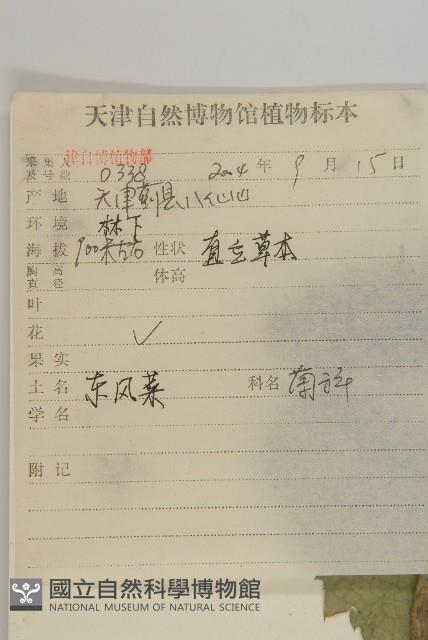 天津自然博物馆植物标本
津自博植物部
采集人
及号数 0338 2004年9月15日
产地 天津蓟县八仙山
环境 林下
海拔 900米左右 性状 直立草本
胸高
直径 体高
叶
花 ✓
果实
土名 东风菜 科名 菊科
学名
附记
國立自然科學博物館
NATIONAL MUSEUM OF NATURAL SCIENCE